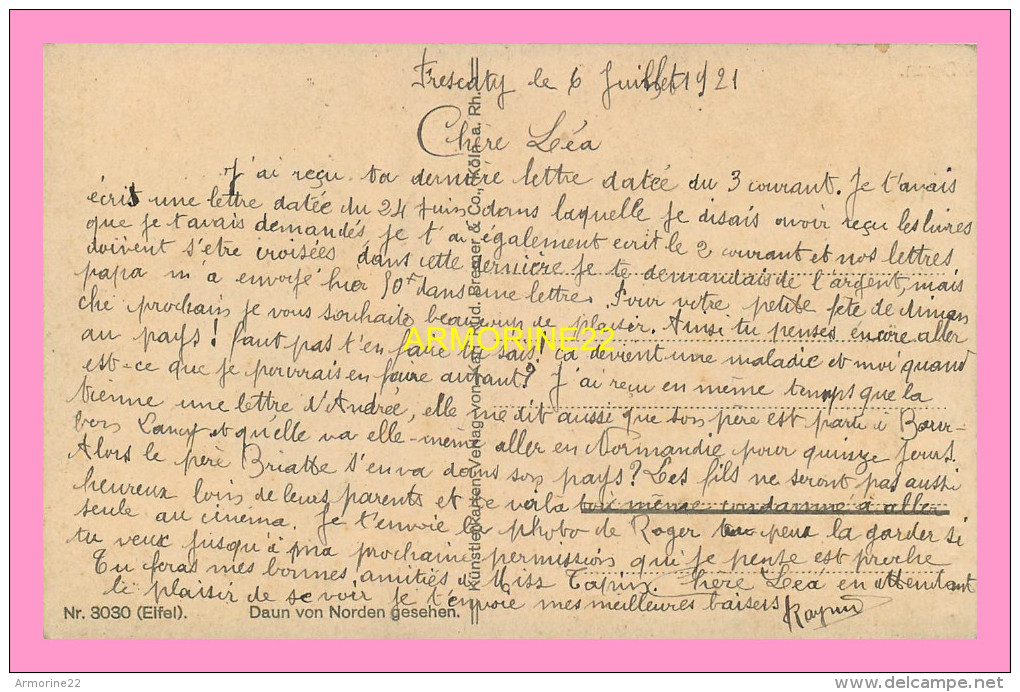 Frescaty le 6 Juillet 1921
Chère Léa
J'ai reçu ta dernière lettre datée du 3 courant. Je t'avais
écrit une lettre datée du 24 Juin dans laquelle je disais avoir reçu les livres
que je t'avais demandés je t'ai également ecrit le 2 courant et nos lettres
doivent s'être croisées dans cette dernière je te demandais de l'argent, mais
papa m'a envoyé hier 50f dans une lettre. Pour votre petite fête de diman
che prochain je vous souhaite beaucoup de plaisir. Ainsi tu penses encore aller
au pays! faut pas t'en faire tu sais! ça devient une maladie et moi quand
est-ce que je pourrais en faire autant? J'ai reçu en même temps que la
tienne une lettre d'Andrée, elle me dit aussi que son père est parti à Bour-
bon Lancy et qu'elle va elle-même aller en Normandie pour quinze jours.
Alors le père Briatte s'en va dans son pays? Les fils ne seront pas aussi
heureux loin de leurs parents et te voilà toi même condamné à aller
seule au cinéma. Je t'envoie la photo de Roger tu peux la garder si
tu veux jusqu'à ma prochaine permission qui je pense est proche
Tu feras mes bonnes amitiés à Miss Tapin. Chère Léa en attendant
le plaisir de se voir je t'envoie mes meilleurs baisers
Raymond
Künstlerkarten-Verlag von Kat. Bremer & Co., Köln a. Rh.
Nr. 3030 (Eifel). Daun von Norden gesehen.
ARMORINE22
Armorine22
http://www.delcampe.net